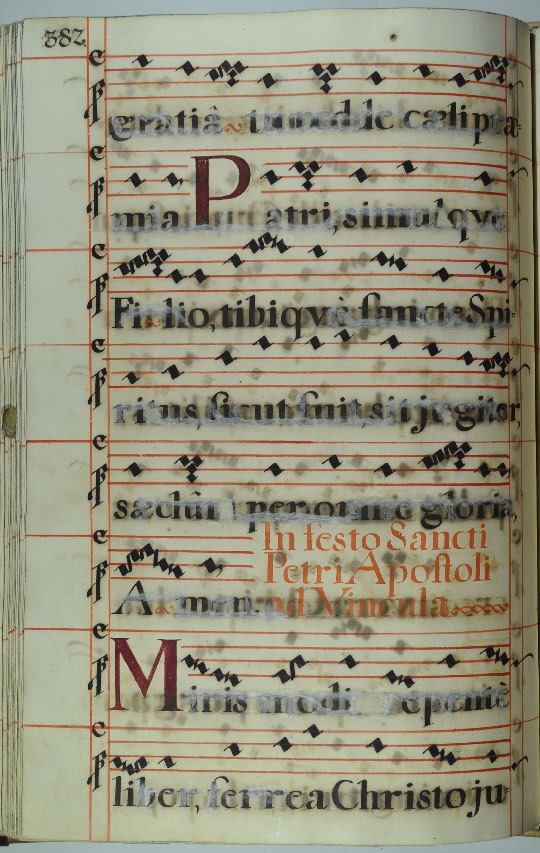 382
gratiâ tu redde cæli præ-
mia. Patri, simulque
Filio, tibique sancte Spi-
ritus, sicut fuit, sit jugiter,
sæclûm per omne gloria,
Amen.
In festo Sancti
Petri Apostoli
ad Vincula
Miris modis repentè
liber, ferrea Christo ju-